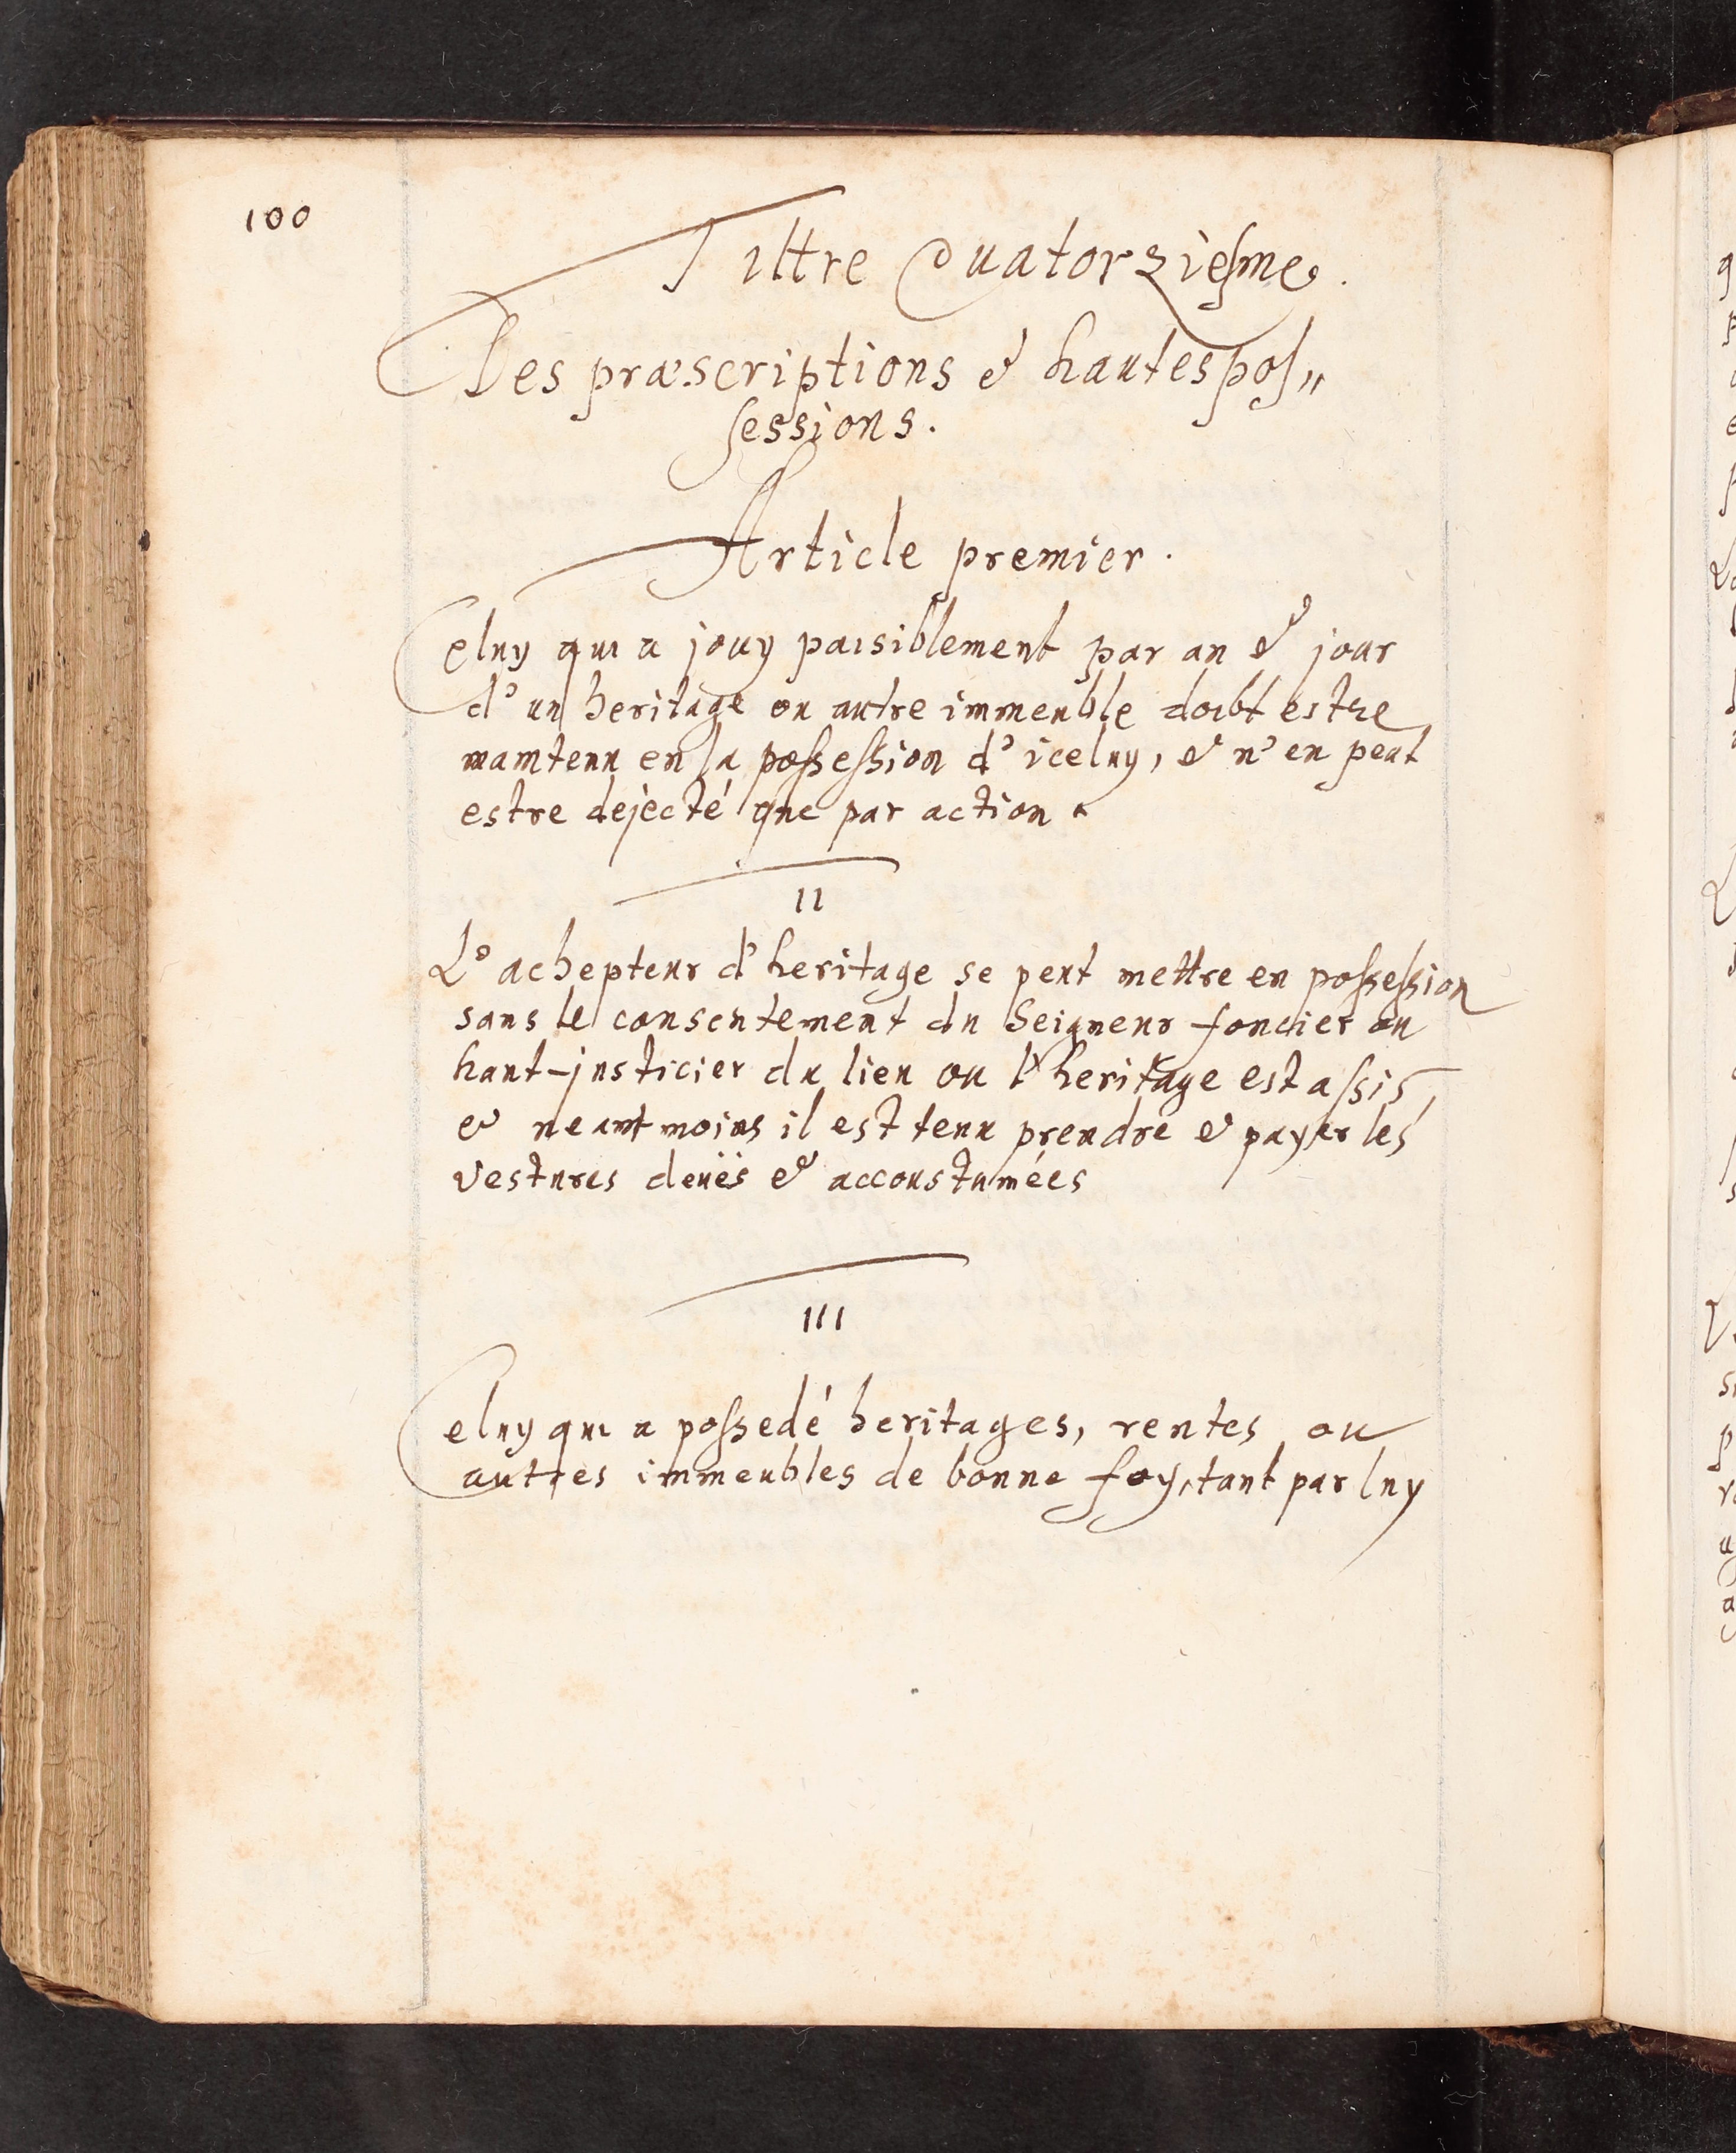 100
Tiltre Quatorziesme.
Des præscriptions & hautes pos„
sessions.
Article premier.
Celuy qui a jouy paisiblement par an & jour
d'un heritage ou autre immeuble doibt estre
maintenu en la possession d'iceluy, & n'en peut
estre dejecté que par action.
II
L'achepteur d'heritage se peut mettre en possession
sans le consentement du Seigneur foncier ou
haut-justicier du lieu ou l'heritage est assis,
& neantmoins il est tenu prendre & payer les
vestures deuës & accoustumées
III
Celuy qui a possedé heritages, rentes ou
autres immeubles de bonne foy, tant par luy